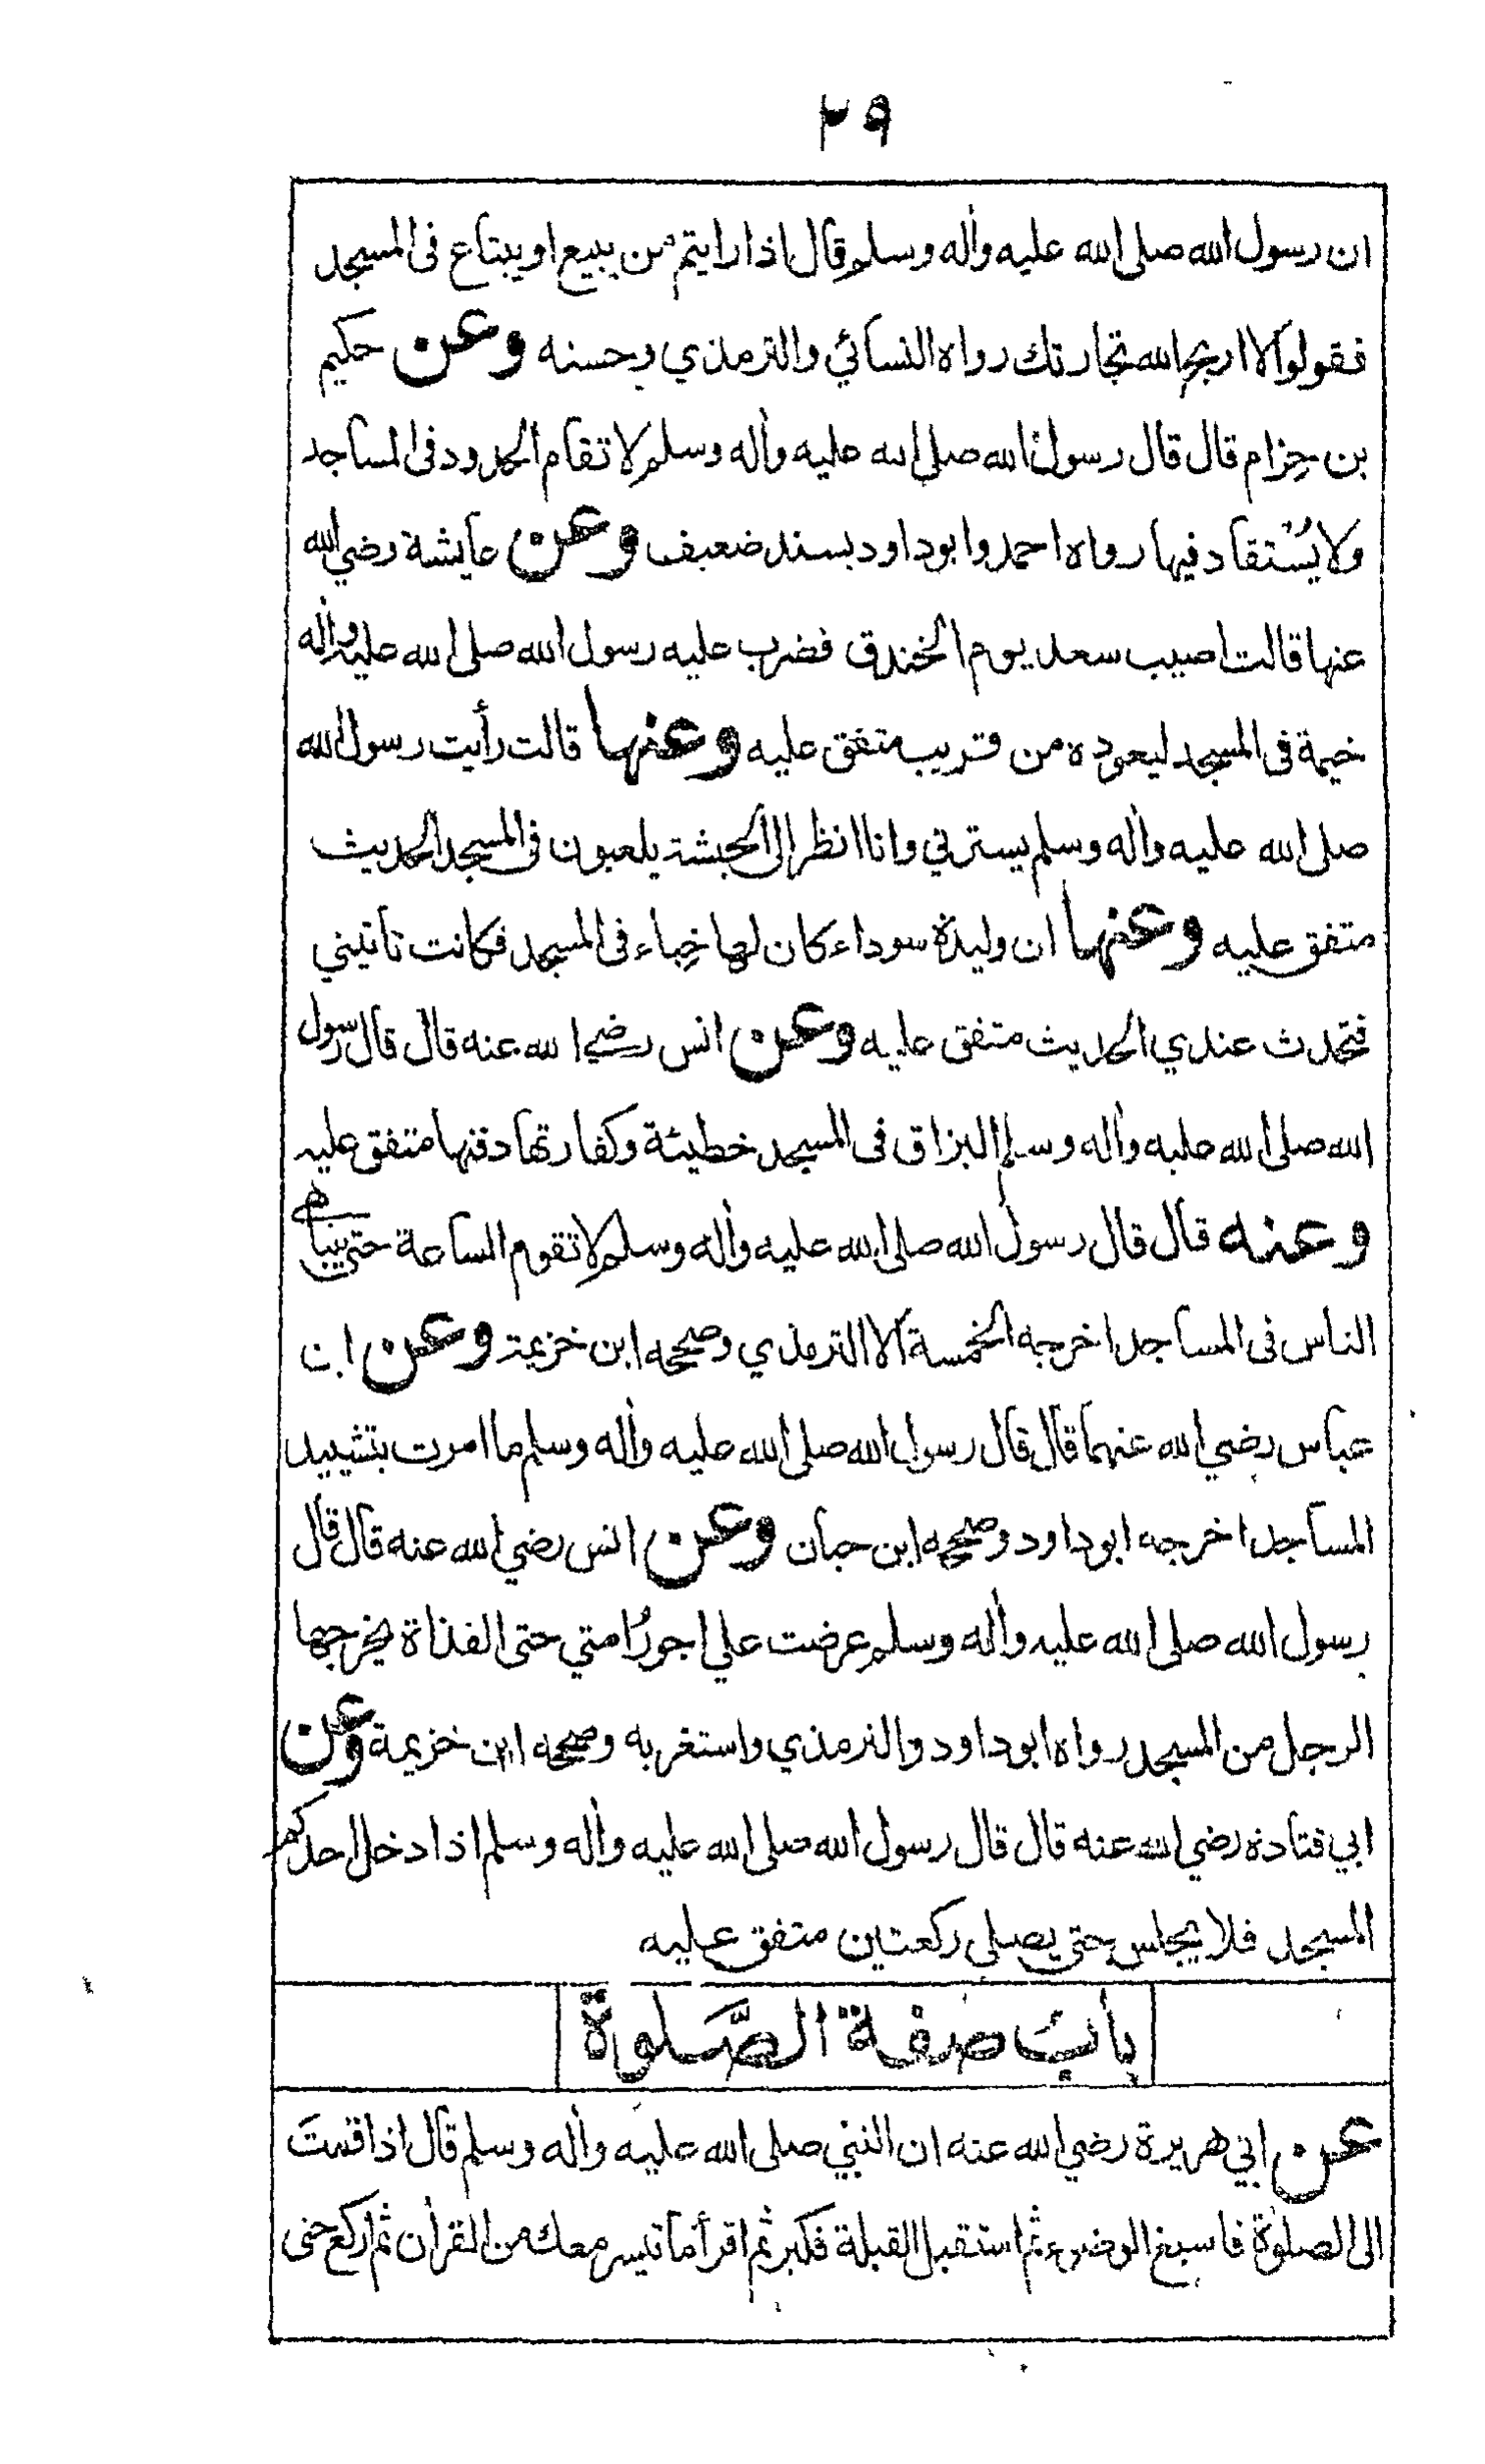 ٢٩
ان رسول الله صلى الله عليه وأله وسلم قال اذا رايتم من يبيع او يبتاع فى المسجد
فقولوا لا اربح الله تجارتك رواه النسائي والترمذي وحسنه وعن حكيم
بن حِزام قال قال رسول الله صلى الله عليه وأله وسلم لا تقام الحدود فى المساجد
ولا يُسْتقاد فيها رواه احمد وابوداود بسند ضعيف وعن عايشة رضي الله
عنها قالت اصيب سعد يوم الخندق فضرب عليه رسول الله صلى الله عليه وأله
خيمة فى المسجد ليعوده من قريب متفق عليه وعنها قالت رأيت رسول الله
صلى الله عليه وأله وسلم يسترني وانا انظر الى الحبشة يلعبون فى المسجد الحديث
متفق عليه وعنها ان وليدة سوداء كان لها خِباء فى المسجد فكانت تأتيني
فتحدث عندي الحديث متفق عليه وعن انس رضي الله عنه قال قال رسول
الله صلى الله عليه وأله وسلم البزاق فى المسجد خطيئة وكفارتها دفنها متفق عليه
وعنه قال قال رسول الله صلى الله عليه وأله وسلم لا تقوم الساعة حتى يتباهى
الناس فى المساجد اخرجه الخمسة الا الترمذي وصححه ابن خزيمة وعن ابن
عباس رضي الله عنهما قال قال رسول الله صلى الله عليه وأله وسلم ما امرت بتشييد
المساجد اخرجه ابوداود وصححه ابن حبان وعن انس رضي الله عنه قال قال
رسول الله صلى الله عليه وأله وسلم عرضت علي اجورُ امتي حتى القذاة يخرجها
الرجل من المسجد رواه ابوداود والترمذي واستغربه وصححه ابن خزيمة وعن
ابي قتادة رضي الله عنه قال قال رسول الله صلى الله عليه وأله وسلم اذا دخل احدكم
المسجد فلا يجلس حتى يصلى ركعتين متفق عليه
باب صفة الصَّلوة
عن ابي هريرة رضي الله عنه ان النبي صلى الله عليه وأله وسلم قال اذا قمتَ
الى الصلوة فاسبغ الوضوء ثم استقبل القبلة فكبر ثم اقرأ ما تيسر معك من القرأن ثم اركع حتى